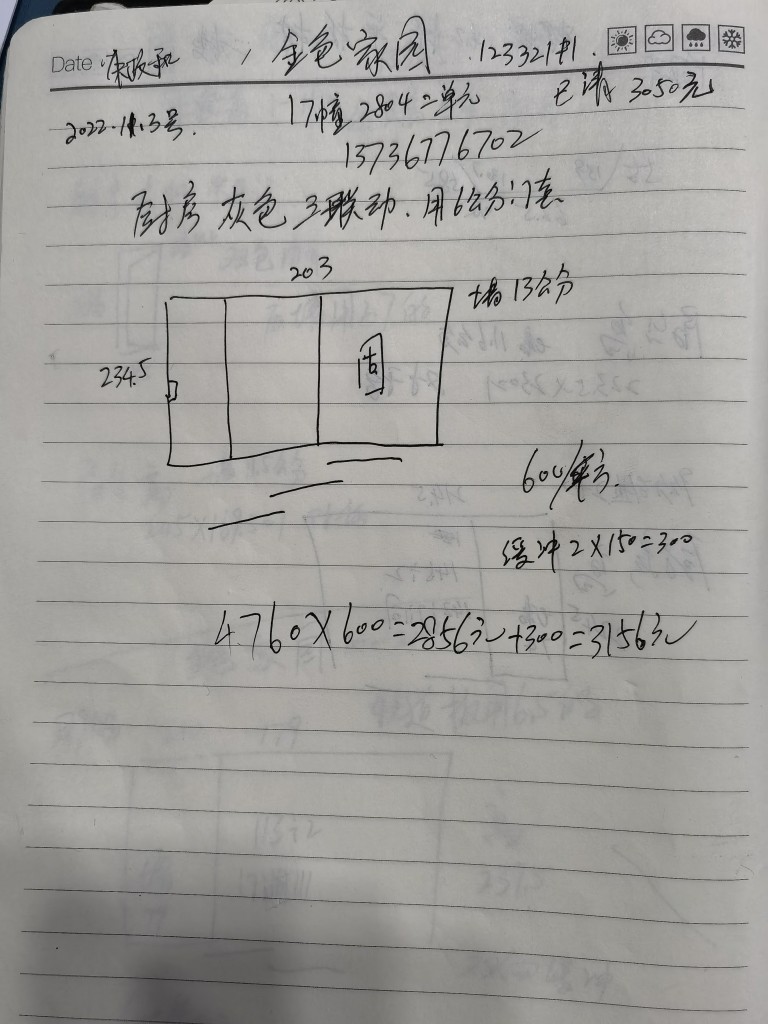 Date
金色家园 123321#1.
2022.11.3号. 17幢 2804 二单元 已清 3050元
13736776702
厨房 灰色 三联动. 用6公分门套
203
墙13公分
234.5
固
600/平方.
缓冲 2×150=300
4.760×600=2856元+300=3156元